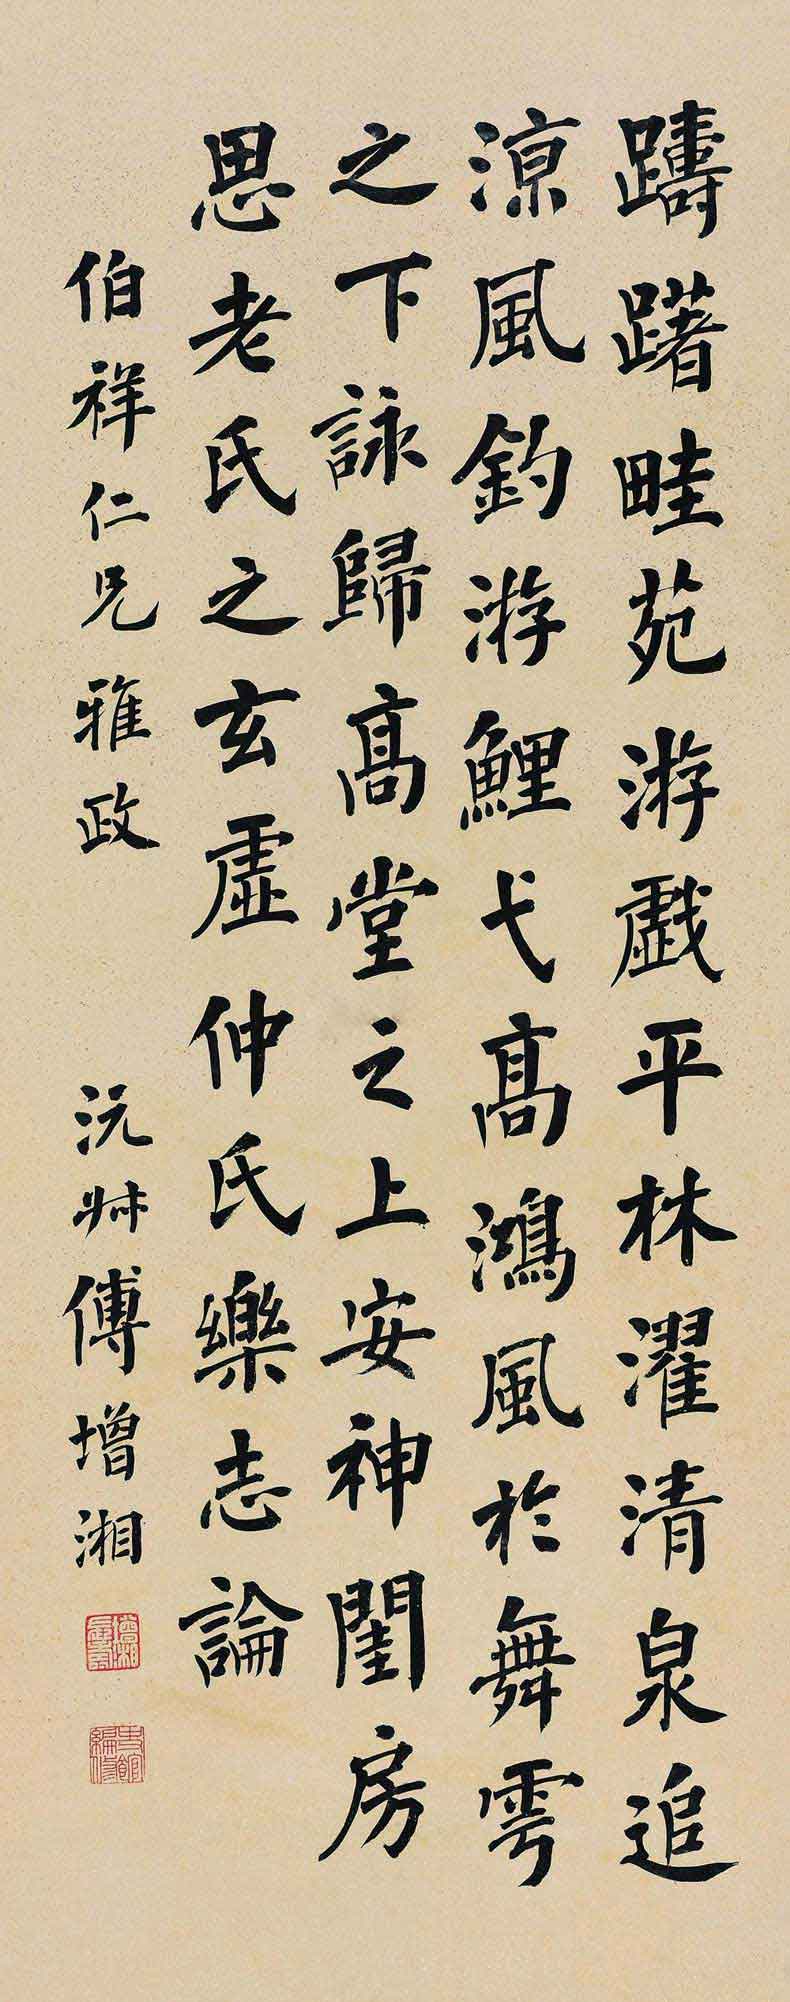 躊躇畦苑游戲平林濯清泉追
涼風釣游鯉弋高鴻風於舞雩
之下詠歸高堂之上安神閨房
思老氏之玄虛仲氏樂志論
伯祥仁兄雅政
沅叔傅增湘